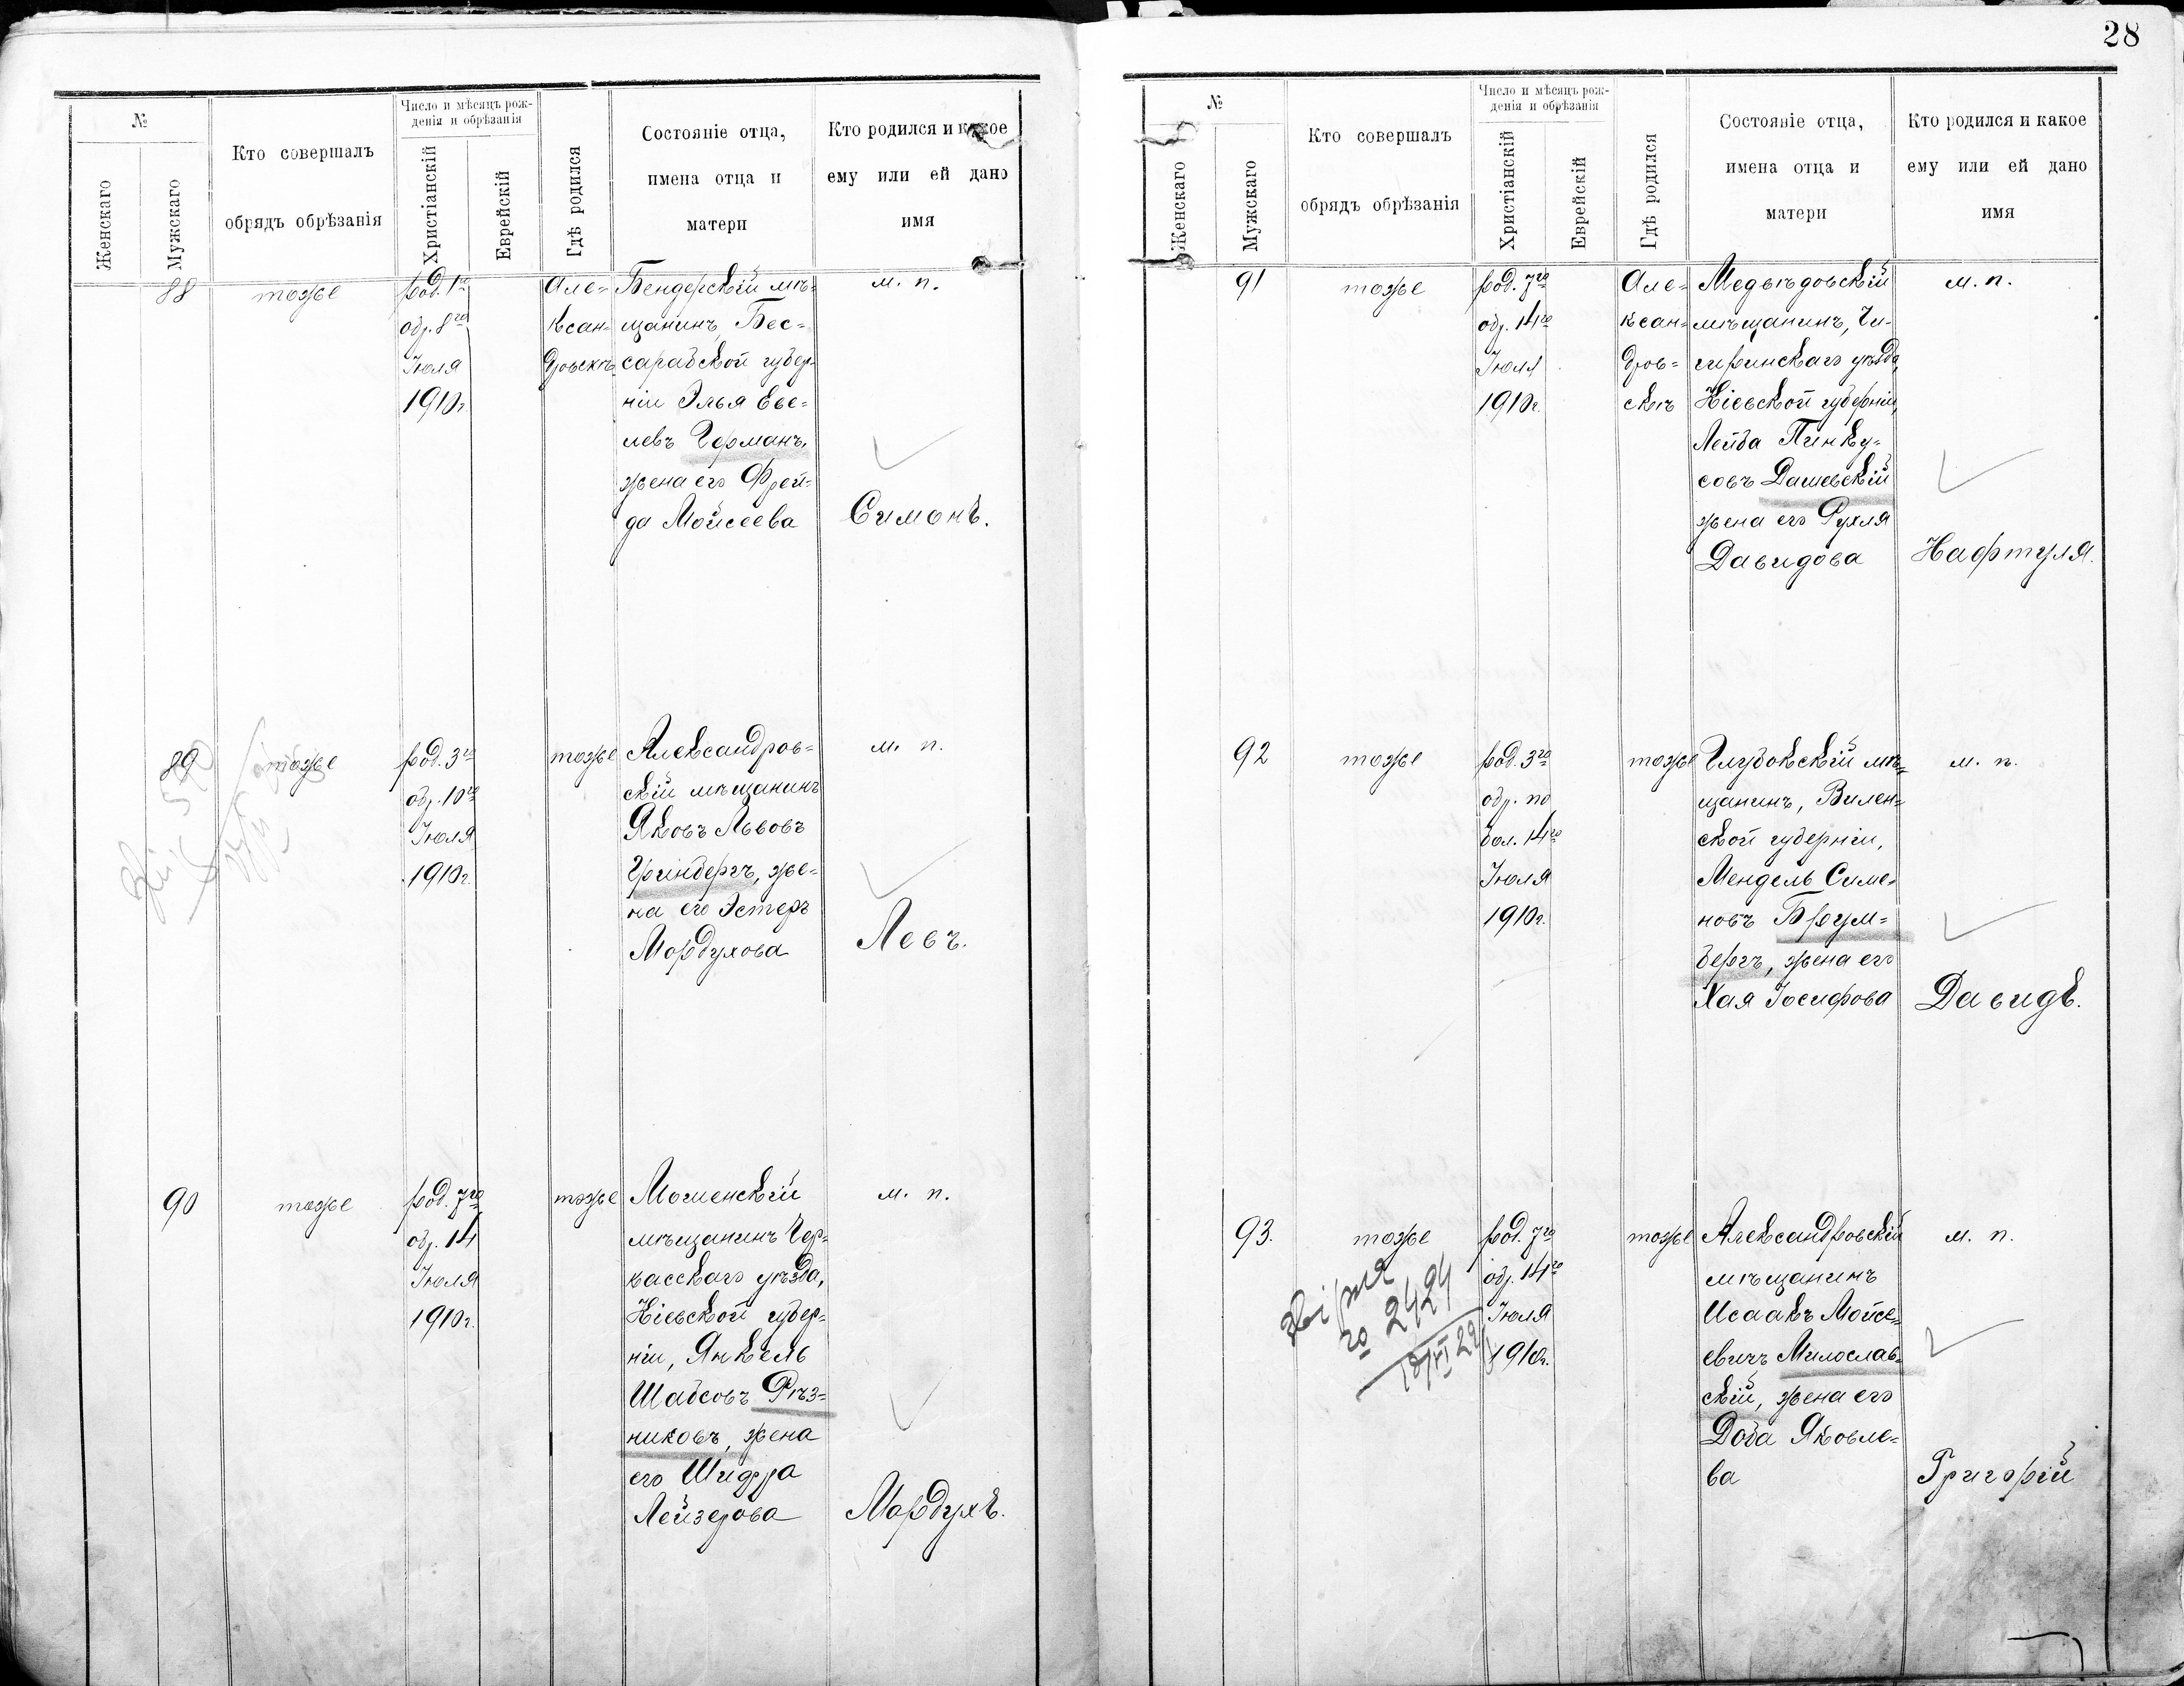 28
№
Женскаго
Мужскаго
Кто совершалъ
обрядъ обрѣзанія
Число и мѣсяцъ рож-
денія и обрѣзанія
Христіанскій
Еврейскій
Гдѣ родился
Состояніе отца,
имена отца и
матери
Кто родился и какое
ему или ей дано
имя
88
тоже
род. 1го
обр. 8го
Іюля
1910г.
Але-
ксан-
дровскѣ
Бендерскій мѣ-
щанинъ, Бес-
сарабской губер-
ніи Элья Еве-
левъ Германъ,
жена его Фрей-
да Мойсеева
м. п.
Симонъ.
89
тоже
род. 3го
обр. 10го
Іюля
1910г.
тоже
Александров-
скій мѣщанинъ
Яковъ Львовъ
Гринбергъ, же-
на его Эстеръ
Мордухова
м. п.
Левъ.
90
тоже
род. 7го
обр. 14
Іюля
1910г.
тоже
Мошенскій
мѣщанинъ Чер-
касскаго уѣзда,
Кіевской губер-
ніи, Янкель
Шабсовъ Рѣз-
никовъ, жена
его
Лейзерова
м. п.
Мордухъ.
№
Женскаго
Мужскаго
Кто совершалъ
обрядъ обрѣзанія
Число и мѣсяцъ рож-
денія и обрѣзанія
Христіанскій
Еврейскій
Гдѣ родился
Состояніе отца,
имена отца и
матери
Кто родился и какое
ему или ей дано
имя
91
тоже
род. 7го
обр. 14го
Іюля
1910г.
Але-
ксан-
дров-
скѣ
Медвѣдовскій
мѣщанинъ, Чи-
гиринскаго уѣзда,
Кіевской губерніи,
Лейба Пинку-
совъ Дашевскій
жена его Рухля
Давидова
м. п.
Нафтуля.
92
тоже
род. 3го
обр. по
бол. 14го
Іюля
1910г.
тоже
Глубокскій мѣ-
щанинъ, Вилен-
ской губерніи,
Мендель Симе-
новъ Брум-
бергъ, жена его
Хая Іосифова
м. п.
Давидъ.
93.
тоже
2424
род. 7го
обр. 14го
Іюля
1910г.
тоже
Александровскій
мѣщанинъ
Исаакъ Мойсе-
евичъ Милослав-
скій, жена его
Доба Яковле-
ва
м. п.
Григорій